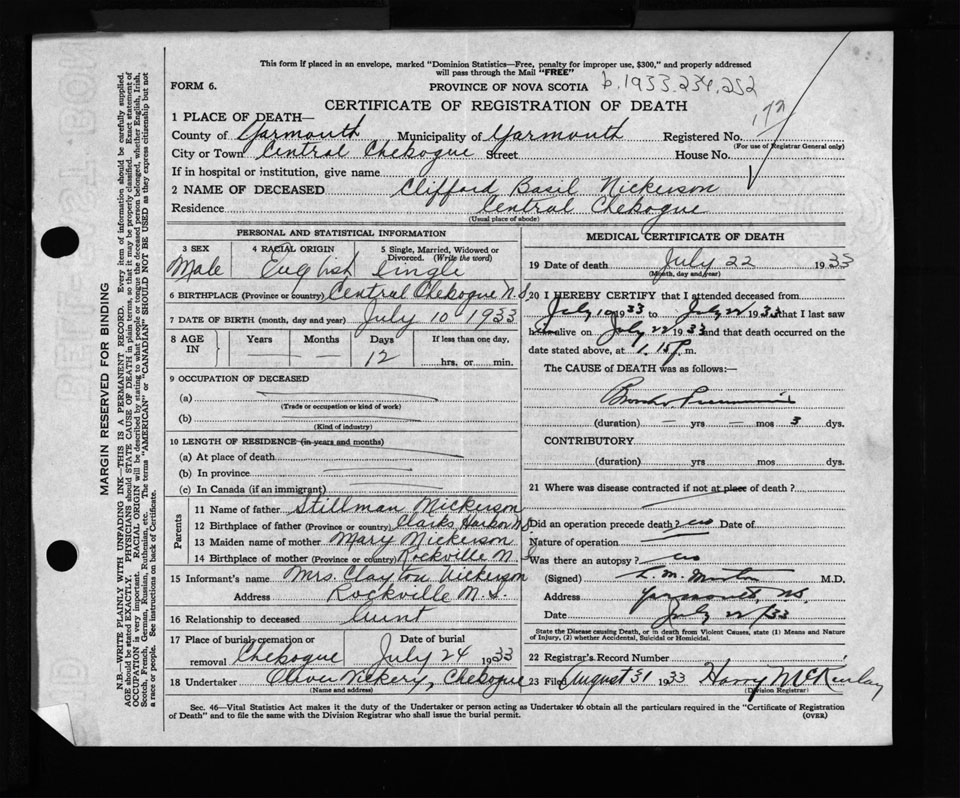 This form if placed in an envelope, marked "Dominion Statistics—Free, penalty for improper use, $300," and properly addressed
will pass through the Mail "FREE"
FORM 6. PROVINCE OF NOVA SCOTIA b. 1933.234.252
CERTIFICATE OF REGISTRATION OF DEATH 172
1 PLACE OF DEATH—
County of Yarmouth Municipality of Yarmouth Registered No.
(For use of Registrar General only)
City or Town Central Chebogue Street House No.
If in hospital or institution, give name
2 NAME OF DECEASED Clifford Basil Nickerson
Residence Central Chebogue
(Usual place of abode)
PERSONAL AND STATISTICAL INFORMATION
3 SEX 4 RACIAL ORIGIN 5 Single, Married, Widowed or
Divorced. (Write the word)
Male English Single
6 BIRTHPLACE (Province or country) Central Chebogue N.S.
7 DATE OF BIRTH (month, day and year) July 10 1933
8 AGE IN Years Months Days If less than one day,
— — 12 hrs. or min.
9 OCCUPATION OF DECEASED
(a)
(Trade or occupation or kind of work)
(b)
(Kind of industry)
10 LENGTH OF RESIDENCE (in years and months)
(a) At place of death
(b) In province
(c) In Canada (if an immigrant)
Parents
11 Name of father Stillman Nickerson
12 Birthplace of father (Province or country) Clarks Harbor N.S.
13 Maiden name of mother Mary Nickerson
14 Birthplace of mother (Province or country) Rockville N.S.
15 Informant's name Mrs. Clayton Nickerson
Address Rockville N.S.
16 Relationship to deceased Aunt
17 Place of burial cremation or removal Chebogue Date of burial July 24 1933
18 Undertaker Oliver Vickery, Chebogue
(Name and address)
MEDICAL CERTIFICATE OF DEATH
19 Date of death July 22 1933
(Month, day and year)
20 I HEREBY CERTIFY that I attended deceased from
July 10 1933 to July 22 1933, that I last saw
him alive on July 22 1933 and that death occurred on the
date stated above, at 1.15 P. m.
The CAUSE of DEATH was as follows:—
Broncho Pneumonia
(duration) — yrs — mos 3 dys.
CONTRIBUTORY
(duration) yrs. mos. dys.
21 Where was disease contracted if not at place of death?
Did an operation precede death? no Date of
Nature of operation
Was there an autopsy? no
(Signed) L. M. Morton M.D.
Address Yarmouth N.S.
Date July 22/33
State the Disease causing Death, or in death from Violent Causes, state (1) Means and Nature
of Injury, (2) whether Accidental, Suicidal or Homicidal.
22 Registrar's Record Number
23 Filed August 31 1933 Harry McKinlay
(Division Registrar)
Sec. 46—Vital Statistics Act makes it the duty of the Undertaker or person acting as Undertaker to obtain all the particulars required in the "Certificate of Registration
of Death" and to file the same with the Division Registrar who shall issue the burial permit. (OVER)
MARGIN RESERVED FOR BINDING
N.B.—WRITE PLAINLY WITH UNFADING INK—THIS IS A PERMANENT RECORD. Every item of information should be carefully supplied.
AGE should be stated EXACTLY. PHYSICIANS should STATE CAUSE OF DEATH in plain terms, so that it may be properly classified. Exact statement of
OCCUPATION is very important. RACIAL ORIGIN will be described by stating to what people or tongue the deceased person belonged, whether English, Irish,
Scotch, French, German, Russian, Ruthenian, etc. The terms "AMERICAN" or "CANADIAN" SHOULD NOT BE USED as they express citizenship but not
a race or people. See instructions on back of Certificate.